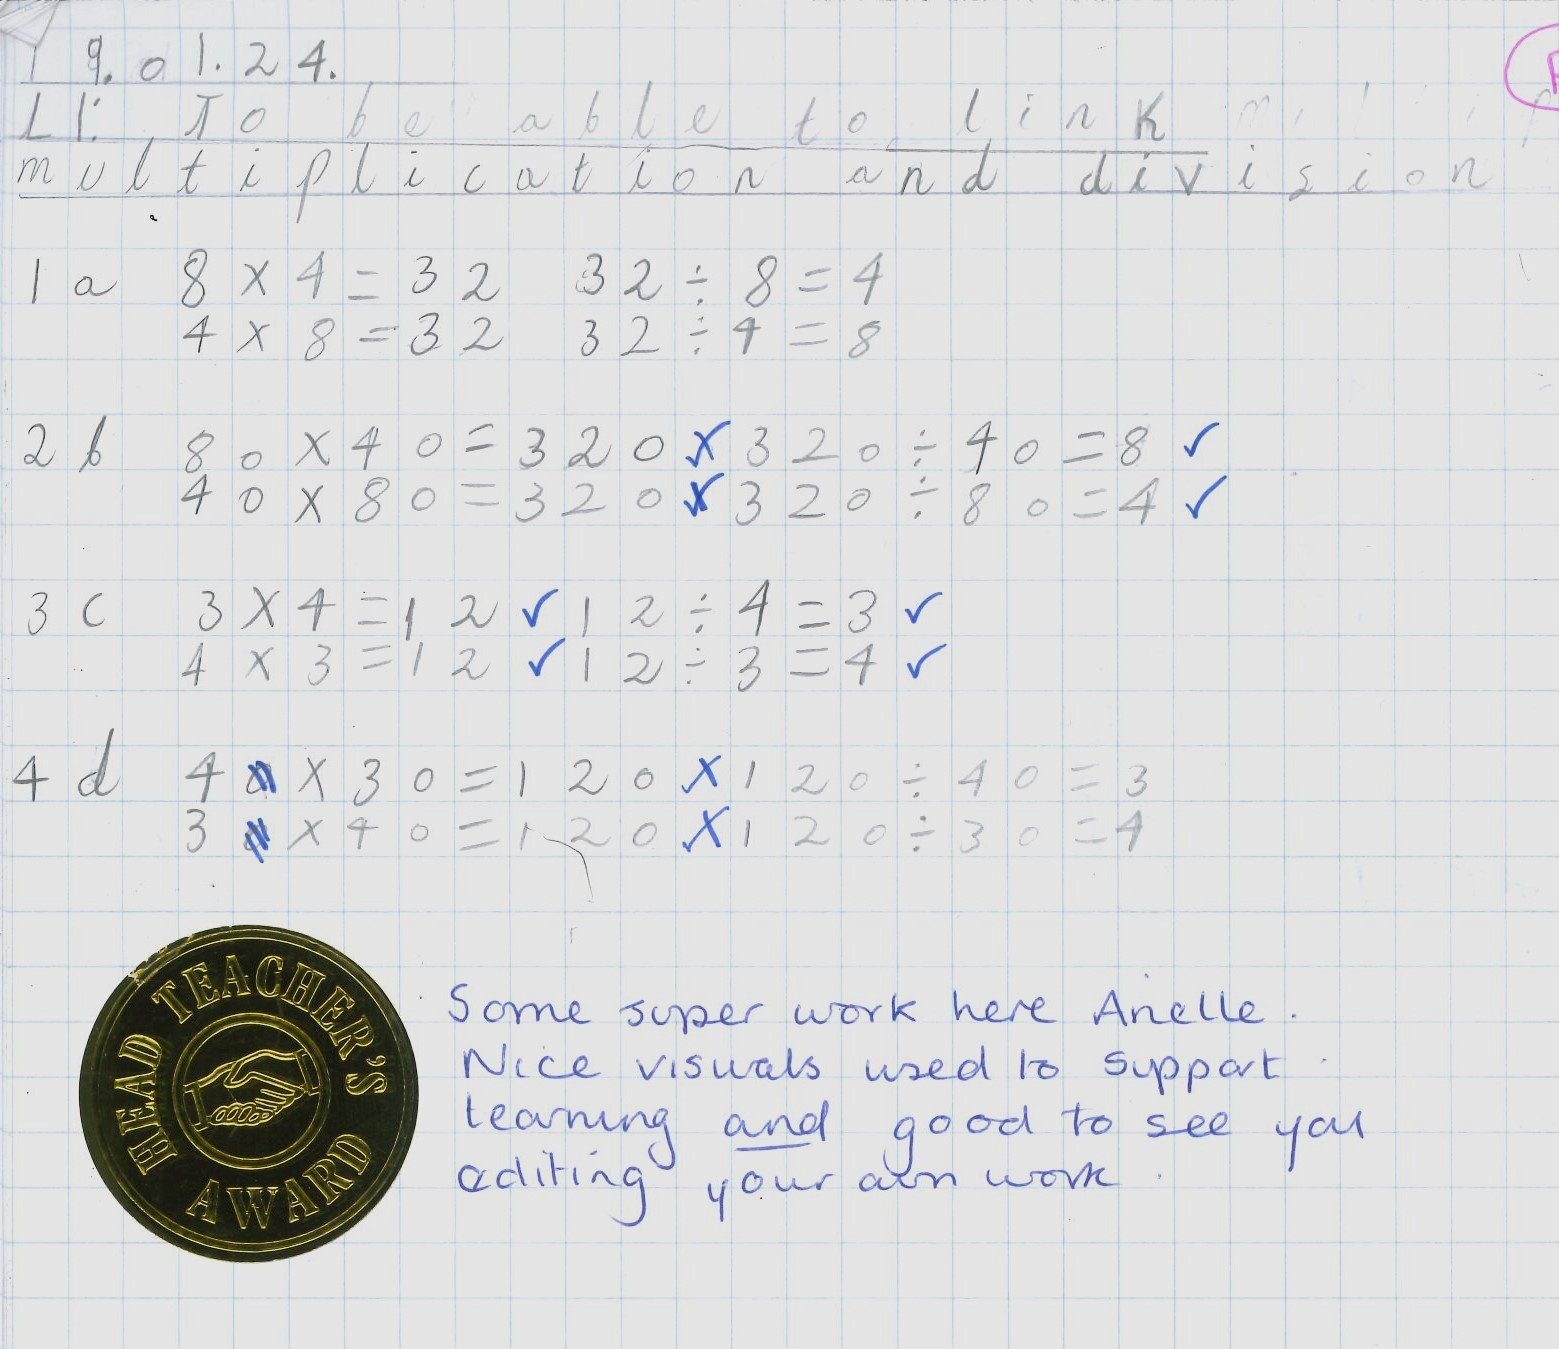 19.01.24.
LI: To be able to link
multiplication and division
1a 8 × 4 = 32 32 ÷ 8 = 4
4 × 8 = 32 32 ÷ 4 = 8
2b 80 × 40 = 320 ✗ 320 ÷ 40 = 8 ✓
40 × 80 = 320 ✗ 320 ÷ 80 = 4 ✓
3c 3 × 4 = 12 ✓ 12 ÷ 4 = 3 ✓
4 × 3 = 12 ✓ 12 ÷ 3 = 4 ✓
4d 4 × 30 = 120 ✗ 120 ÷ 40 = 3
3 × 40 = 120 ✗ 120 ÷ 30 = 4
HEAD TEACHER'S
AWARD
Some super work here Arielle.
Nice visuals used to support
learning and good to see you
editing your own work.